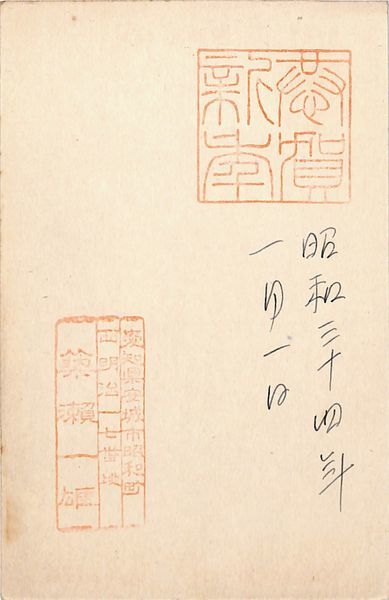 恭賀
新年
昭和三十四年
一月一日
愛知県安城市昭和町
明治一七番地
簗瀬一雄